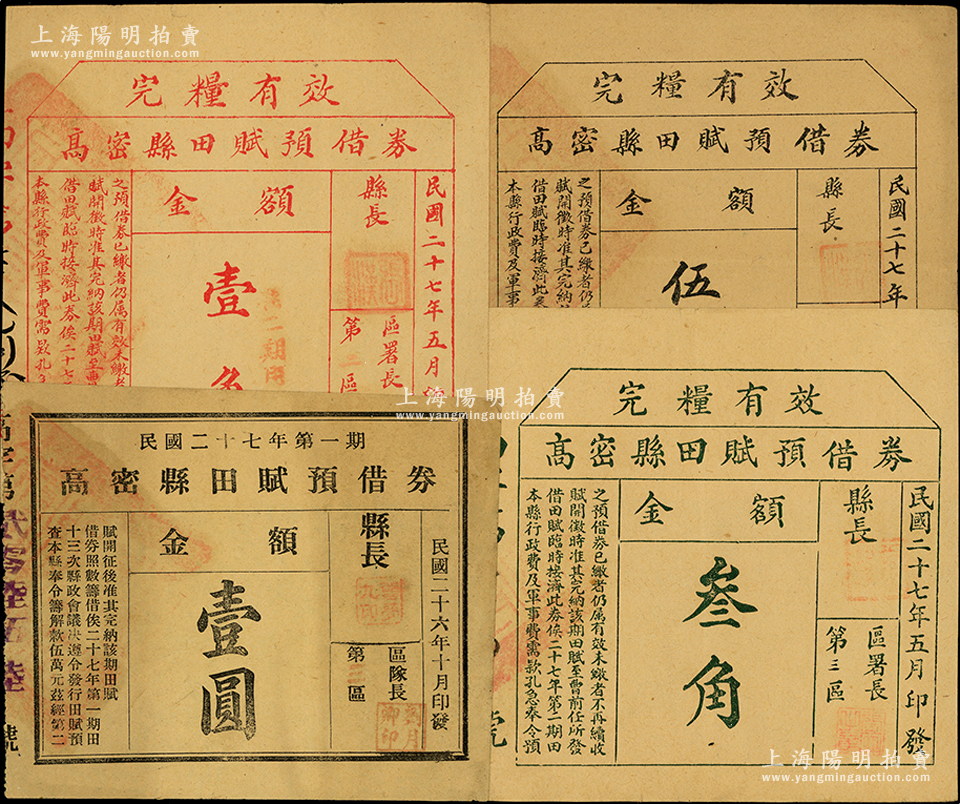 上海陽明拍賣
www.yangmingauction.com
完糧有效
高密縣田賦預借券
民國二十七年五月
縣長
區署長
第三區
金額
壹角
之預借券已繳者仍屬有效未繳者
賦開徵時准其完納該期田賦至曹
借田賦臨時接濟此券俟二十七
本縣行政費及軍事費需款孔
上海陽明拍賣
www.yangmingauction.com
完糧有效
高密縣田賦預借券
民國二十七年
縣長
金額
伍
之預借券已繳者仍
賦開徵時准其完納
借田賦臨時接濟此券
本縣行政費及軍事
民國二十七年第一期
高密縣田賦預借券
民國二十六年十月印發
縣長
區隊長
第二區
金額
壹圓
賦開征後准其完納該期田賦
借券照數籌借俟二十七年第一期田
十三次縣政會議决遵令發行田賦預
查本縣奉令籌解款伍萬元茲經第二
高字第
貳零陸伍陸
號
上海陽明拍賣
www.yangmingauction.com
完糧有效
高密縣田賦預借券
民國二十七年五月印發
縣長
區署長
第三區
金額
叁角
之預借券已繳者仍屬有效未繳者不再續收
賦開徵時准其完納該期田賦至曹前任所發
借田賦臨時接濟此券俟二十七年第二期田
本縣行政費及軍事費需款孔急奉令預
號
上海陽明拍賣
www.yangmingauction.com